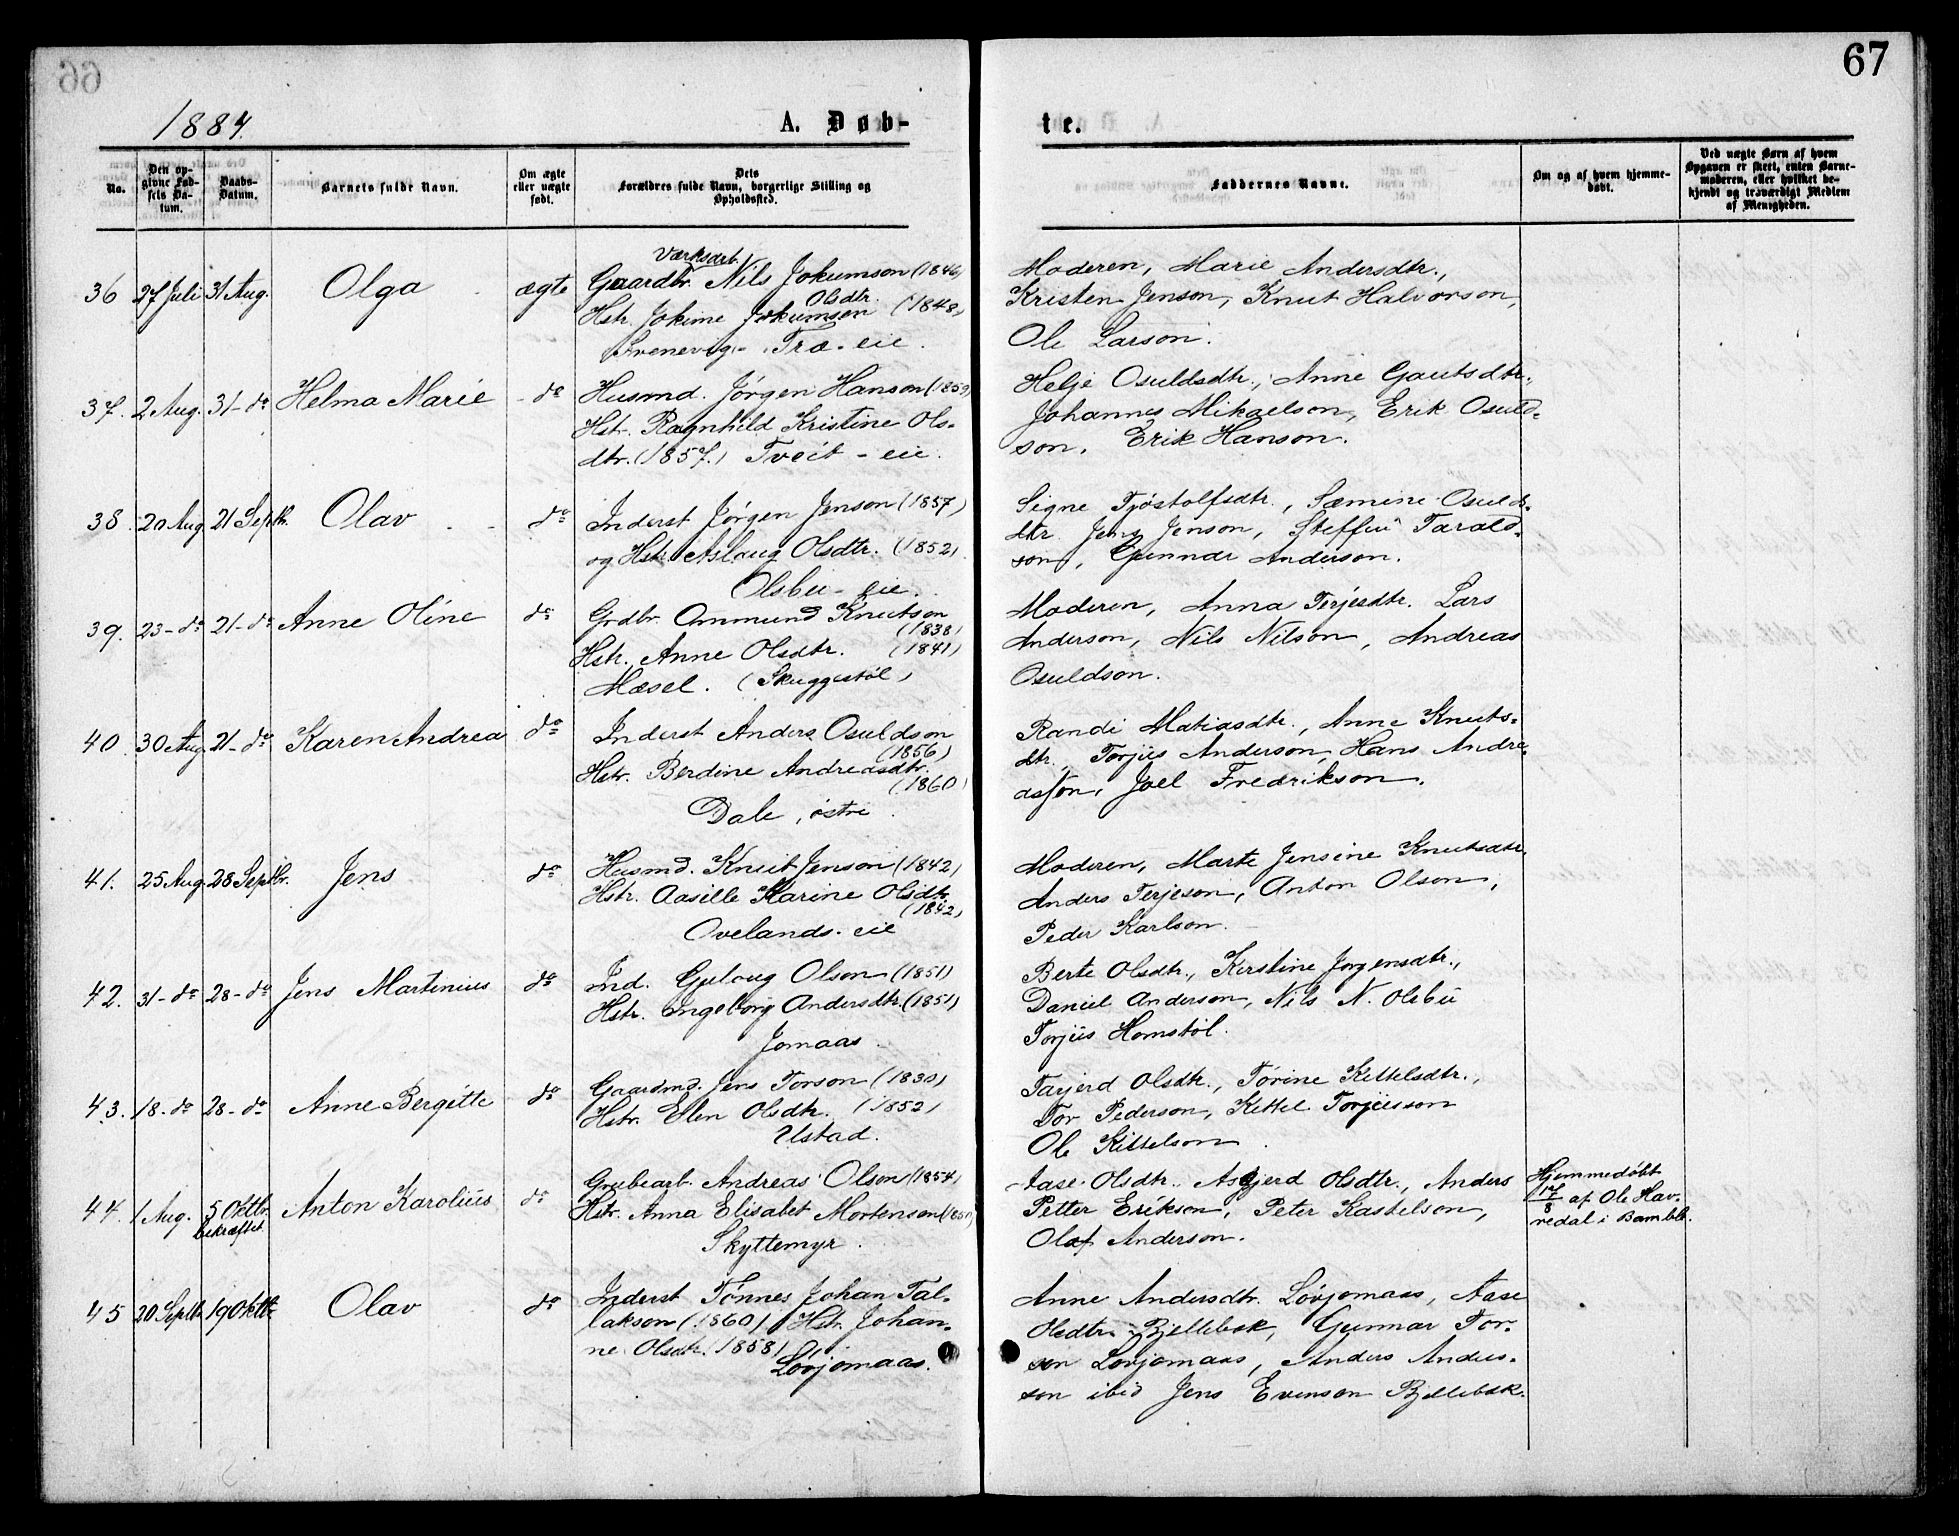 66
67
1884.
A. Døb-
te.
No.
Den op-
givne Fød-
sels Da-
tum.
Daabs-
Datum.
Barnets fulde Navn.
Om ægte
eller uægte
født.
Dets
Forældres fulde Navn, borgerlige Stilling og
Opholdssted.
Faddernes Navne.
Om og af hvem hjemme-
døbt.
Ved uægte Børn af hvem
Opgaven er skeet, enten Barne-
moderen, eller hvilket be-
kjendt og troværdigt Medlem
af Menigheden.
36 27 Juli 31 Aug. Olga ægte
Værksarb.
Gaardbr. Nils Jokumson (1846)
Olsdtr.
Hstr. Jokime Jokumsen (1848)
Svenevig - Træ - eie.
Moderen, Marie Andersdtr.,
Kristen Jenson, Knut Halvorson,
Ole Larson.
37. 2 Aug. 31 - do Helma Marie - do
Husmd. Jørgen Hanson (1859)
Hstr. Ragnhild Kristine Ols-
dtr. (1857.) Tveit - eie.
Helje Osuldsdtr., Anne Gautsdtr.,
Johannes Mikaelson, Erik Osuld-
son, Erik Hanson.
38. 20 Aug 21 Septbr. Olav do
Inderst Jørgen Jenson (1857)
og Hstr. Aslaug Olsdtr. (1852)
Olsbu - eie.
Signe Tjøstolfsdtr., Sæmine Osulds-
dtr. Jens Jenson, Steffen Tarald-
son, Gunnar Anderson.
39. 23 - do 21 - do Anne Oline do
Grdbr. Ommund Knutson
(1838)
Hstr. Anne Olsdtr. (1841)
Mæsel. (Skuggestøl)
Moderen, Anna Terjesdtr. Lars
Anderson, Nils Nilson, Andreas
Osuldson.
40. 30 Aug 21 - do Karen Andrea do
Inderst Anders Osuldson
(1856)
Hstr. Berdine Andreasdtr.
(1860)
Dale, østre.
Randi Matiasdtr., Anne Knuts-
dtr. Torjus Anderson, Hans Andre-
asson, Joel Fredrikson.
41. 25 Aug. 28 Septbr. Jens do
Husmd. Knut Jenson (1842)
Hstr. Aasille Karine Olsdtr.
(1842)
Ovelands - eie
Moderen, Marte Jensine Knutsdtr.
Anders Terjeson, Anton Olson,
Peder Karlson.
42. 31 - do 28 - do Jens Martinius do
Ind. Guloug Olson (1851)
Hstr. Ingeborg Andersdtr. (1851)
Jomaas
Berte Olsdtr., Kirstine Jørgensdtr.,
Daniel Anderson, Nils N. Olsbu
Torjus Homstøl.
43. 18. do 28 - do Anne Bergitte do
Gaardmd. Jens Torson (1830)
Hstr. Elen Olsdtr. (1852)
Ustad.
Tarjerd Olsdtr., Torine Kittelsdtr.,
Tor Pederson, Kittel Torjusson
Ole Kittelson.
44. 1 Aug. 5 Oktbr. Anton Karolius do
bekræftet
Grubearb. Andreas Olson (1854)
Hstr. Anna Elisabet Mortensen
Skyttemyr.
Aase Olsdtr., Asgjerd Olsdtr., Anders
Petter Erikson, Peter Kastelson,
Olaf Anderson.
Hjemmedøbt
17/8 af Ole Hav-
redal i Bamble.
45 20 Septbr. 19 Oktbr. Olav do
Inderst Tønnes Johan Tal-
lakson (1860) Hstr. Johan-
ne Olsdtr. (1858)
Løvjomaas.
Anne Andersdtr. Løvjomaas, Aase
Olsdtr. Bjellebæk, Gunnar Tor-
son Løvjomaas, Anders Anders-
son ibid Jens Evenson Bjellebæk.